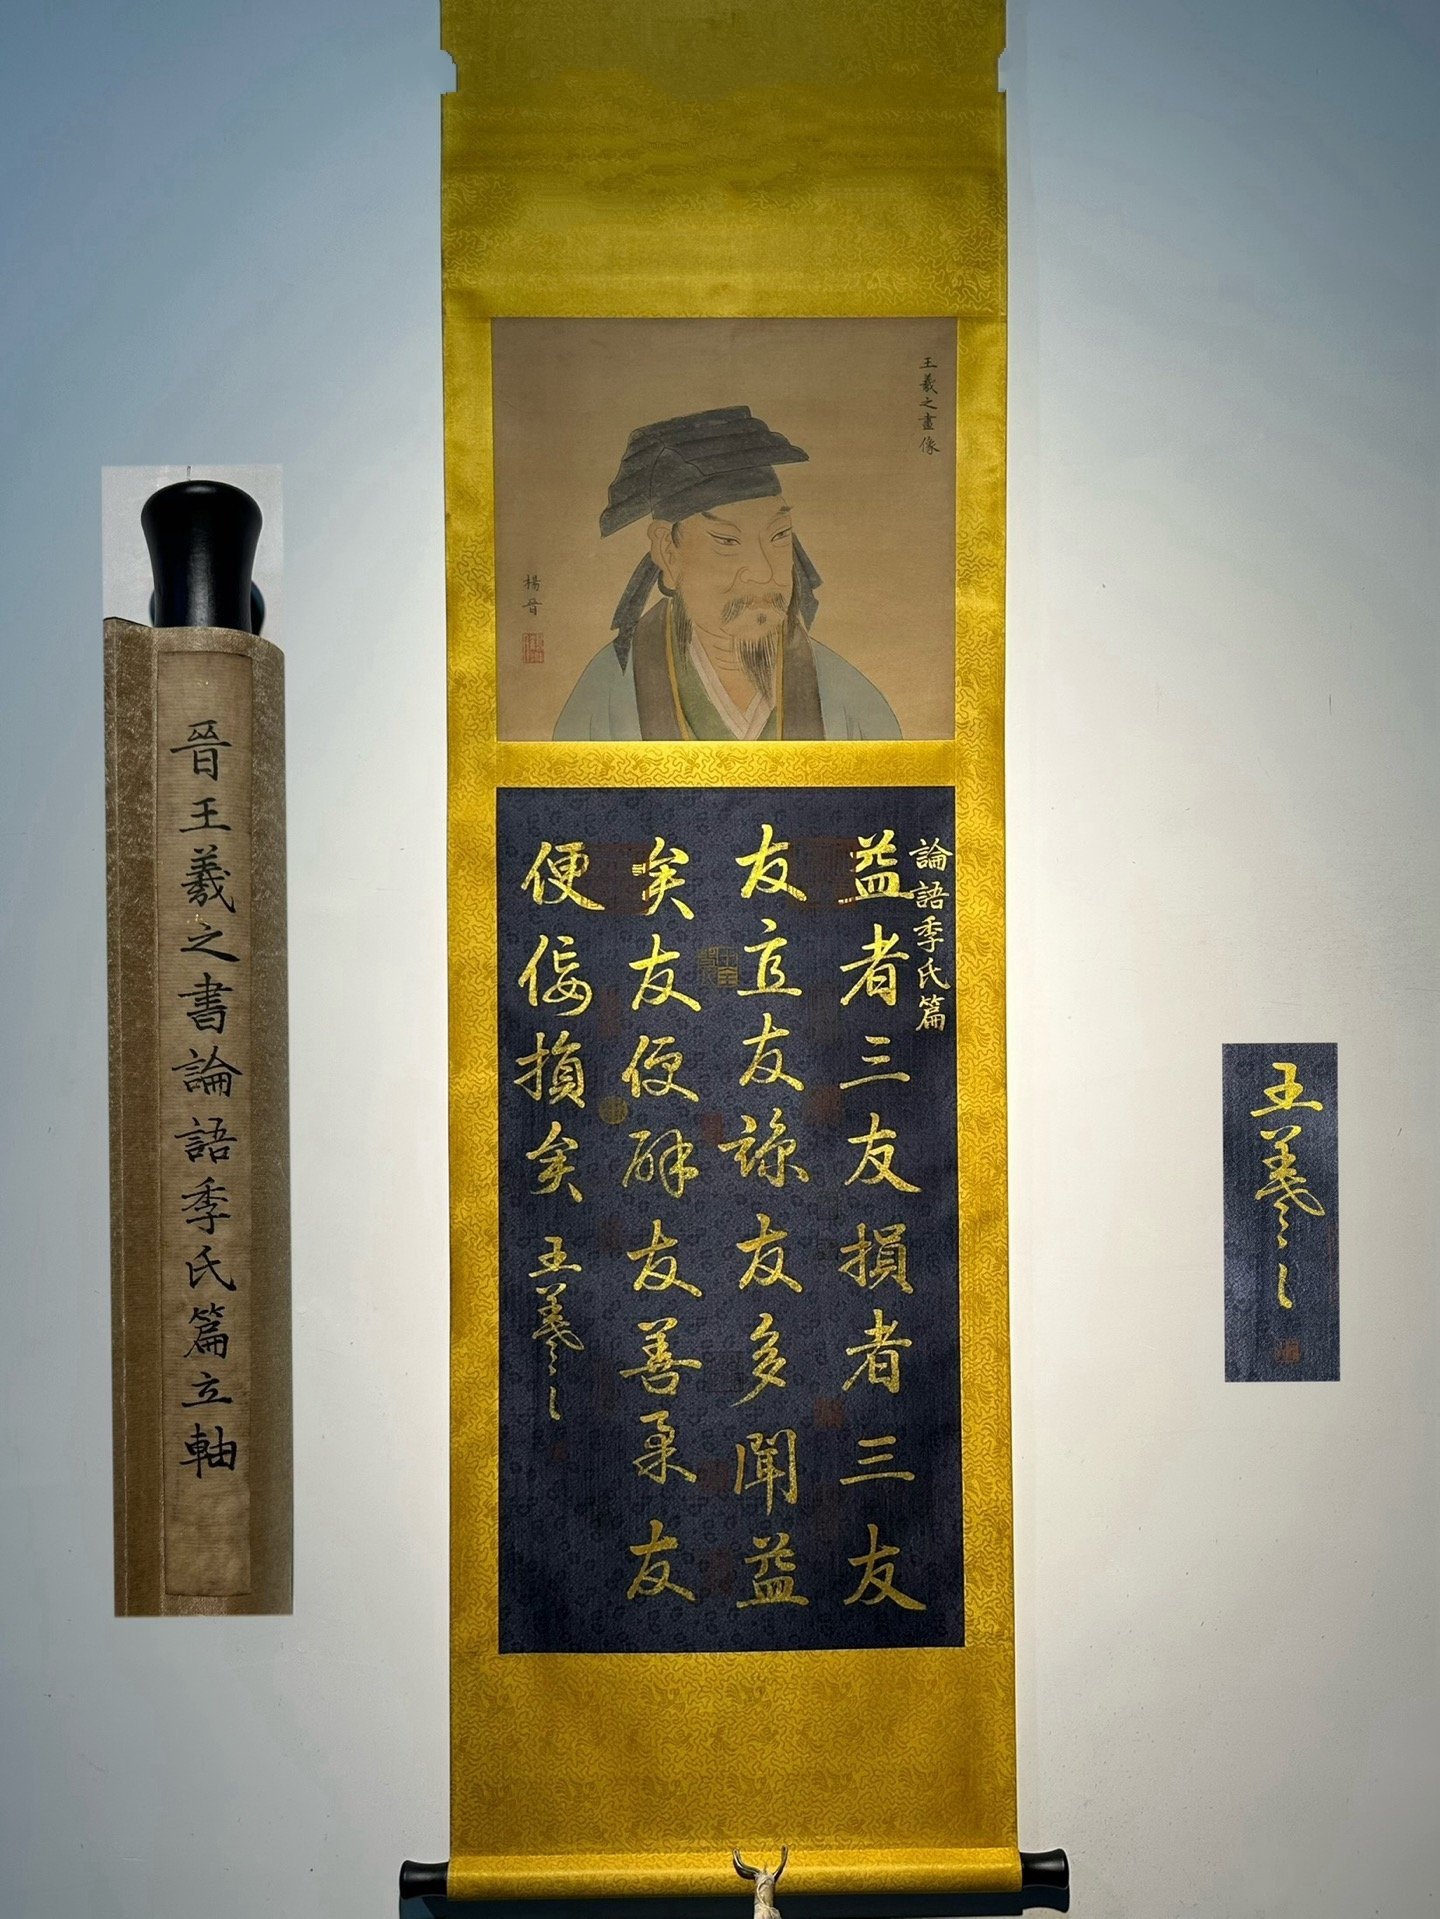 晉王羲之書論語季氏篇立軸
王羲之畫像
楊晉
論語季氏篇
益者三友損者三友
友直友諒友多聞益
矣友便辟友善柔友
便佞損矣
王羲之
王羲之